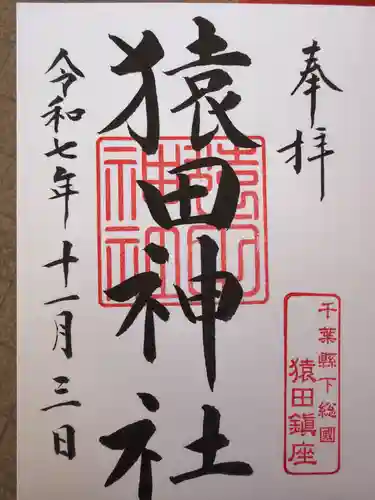 奉拝
千葉縣下総國
猿田鎮座
猿田神社
猿田神社
令和七年十一月三日